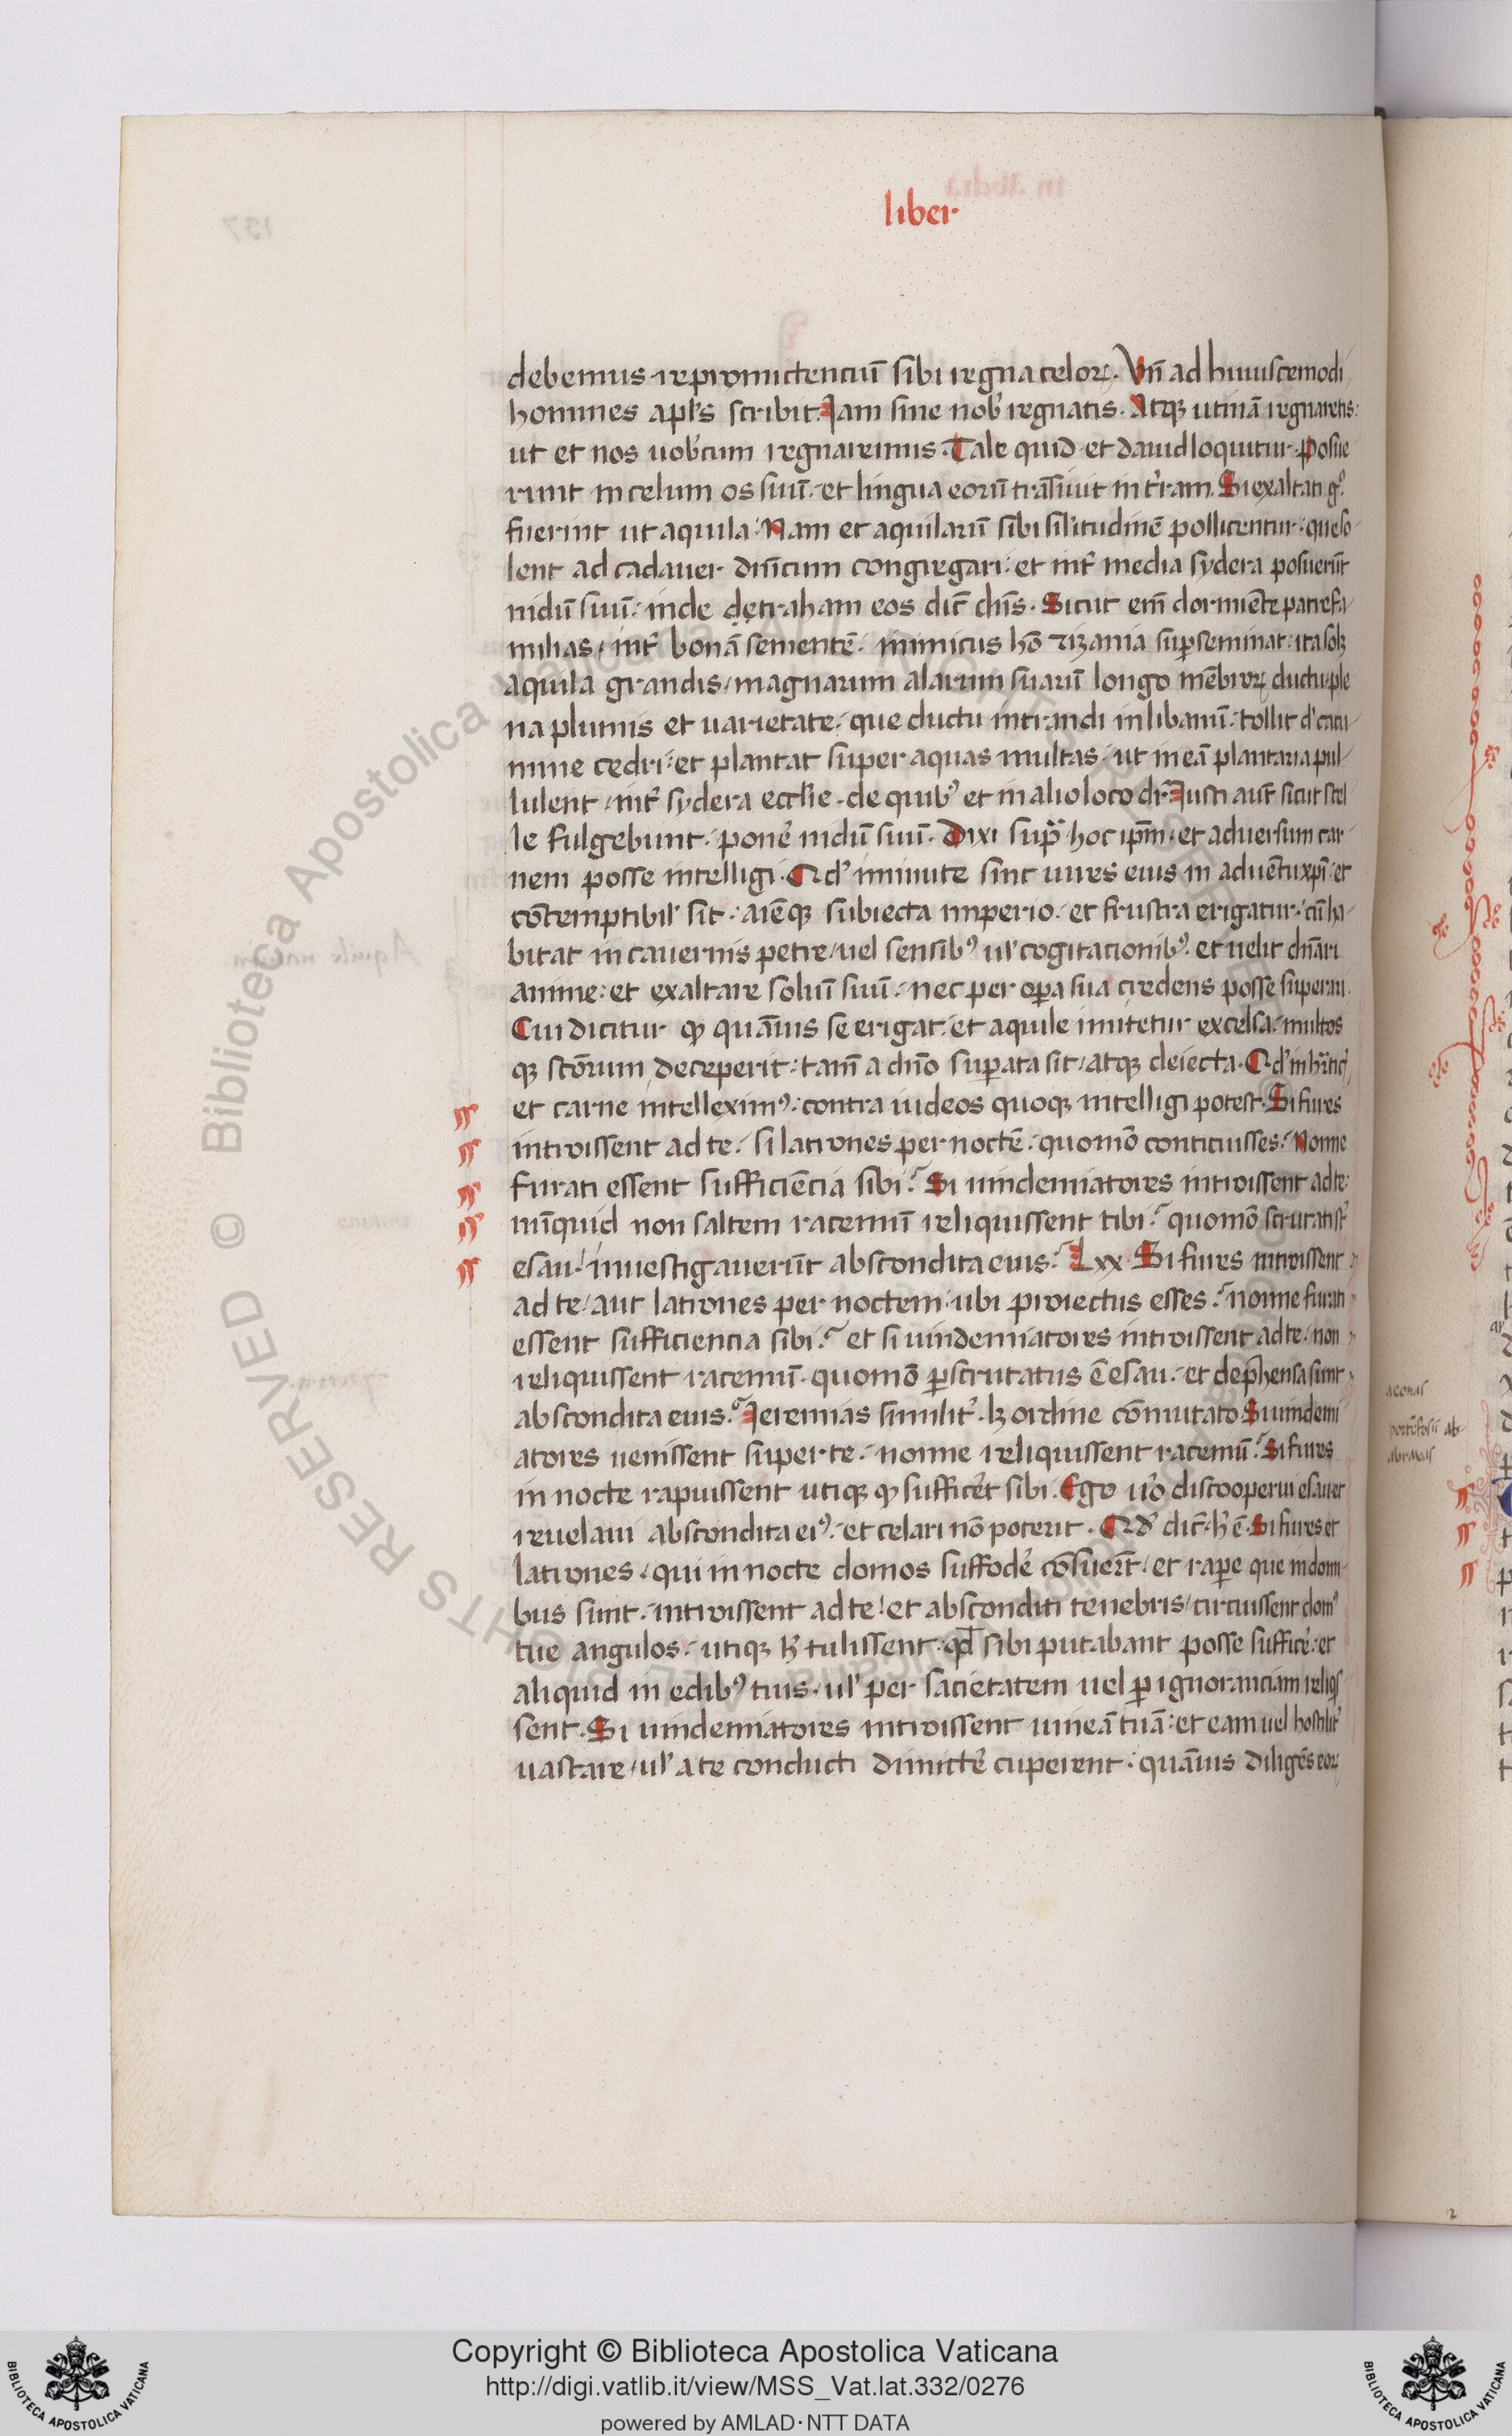 liber
debemus repromittenciū sibi regna celoꝝ. Vn̄ ad huiuscemodi
homines apl's scribit. Iam sine nob' regnatis. Atqꝫ utinā regnaretis:
ut et nos uob'cum regnaremus. Tale quid et dauid loquitur. Posue
runt in celum os suū. et lingua eorū trāsiuit in t'ram. Si exaltati gͦ
fuerint ut aquila. Nam et aquilarū sibi sil'itudinē pollicentur. que so
lent ad cadauer diuicium congregari. et int' media sydera posuerūt
nidū suū. inde detraham eos dic̄ dn̄s. Sicut em̄ dormiēte patrefa
milias, int' bonā sementē. inimicus hō zizania suꝑseminat. ita solꝫ
aquila grandis, magnarum alarum suarū longo mēbroꝝ ductu, ple
na plumis et uarietate. que ductu intrandi in libanū. tollit d' cacu
mine cedri. et plantat super aquas multas. ut in eā plantaria pul
lulent, int' sydera eccl'ie. de quibꝰ et in alio loco dr̄. Iusti aut̄ sicut stel
le fulgebunt. pon'e nidū suū. Dixi supͣ hoc ip̄m. et aduersum car
nem posse intelligi. Qd' iminute sint uires eius in aduētu xp̄i. et
cōtemptibil' sit. aiēqꝫ subiecta imperio. et frustra erigatur. cū ha
bitat in cauernis petre, uel sensibꝰ ul' cogitationibꝰ. et uelit dn̄ari
anime. et exaltare soluī suū. nec per oꝑa sua credens posse superari.
Cui dicitur ꝙ quāuis se erigat. et aquile imitetur excelsa. multos
qꝫ sc̄orum deceperit. tam̄ a dn̄o suꝑata sit, atqꝫ deiecta. Qd' in h'etic'
et carne intelleximꝰ. contra iudeos quoqꝫ intelligi potest. Si fures
introissent ad te. si latrones per noctē. quomō conticuisses. Nonne
furati essent sufficiēcia sibi? Si uindemiatores introissent ad te.
nūquid non saltem racemū reliquissent tibi? quomō scrutati st'
esau. inuestigauerūt abscondita eius? Lxx. Si fures introissent
ad te, aut latrones per noctem. ubi proiectus esses? nonne furati
essent sufficiencia sibi? et si uindemiatores introissent ad te. non
reliquissent racemū. quomō ꝑscrutatus ē esau. et dep̄hensa sunt
abscondita eius? Ieremias similit'. lꝫ ordine cōmutato. Si uindemi
atores uenissent super te. nonne reliquissent racemū? Si fures
in nocte rapuissent utiqꝫ ꝙ suffic'et sibi. Ego u'o discooperui esau et
reuelaui abscondita eiꝰ. et celari nō poterit. Qd' dic̄. h' ē. Si fures et
latrones, qui in nocte domos suffod'e cōsuer̄t, et raꝑe que in domi
bus sunt. introissent ad te. et absconditi tenebris, circuissent domꝰ
tue angulos. utiqꝫ h' tulissent. qd̄ sibi putabant posse suffic'e. et
aliquid in edibꝰ tuis. ul' per sacietatem uel ꝑ ignoranciam reliqs'
sent. Si uindemiatores introissent uineā tuā. et eam uel hostilit'
uastare, ul' a te conducti dimitt'e cuperent. quāuis diligēs eoꝝ
Copyright © Biblioteca Apostolica Vaticana
http://digi.vatlib.it/view/MSS_Vat.lat.332/0276
powered by AMLAD·NTT DATA